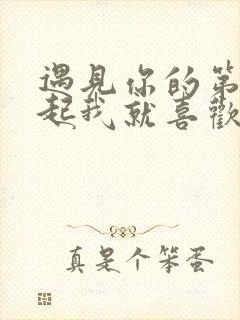 遇見你的第
起我就喜歡
真是个笨蛋